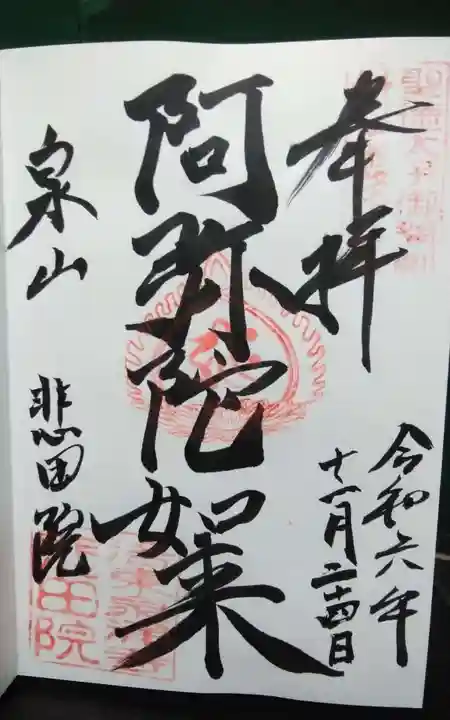 奉拝
令和六年
十一月二十四日
阿弥陀如来
泉山
悲田院
悲田院